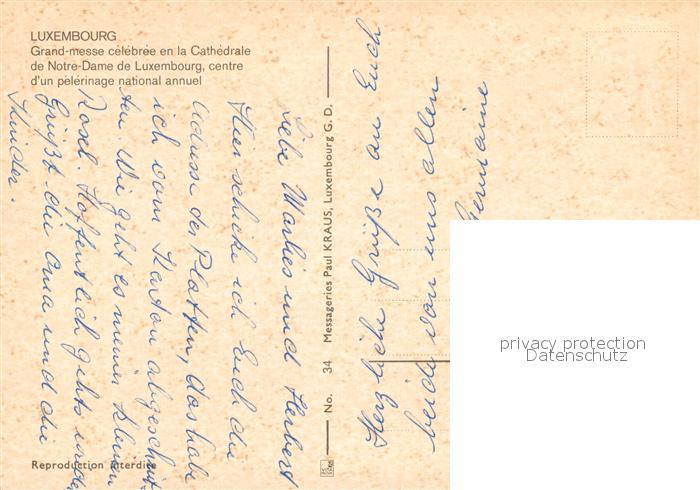 LUXEMBOURG
Grand-messe célébrée en la Cathédrale
de Notre-Dame de Luxembourg, centre
d'un pèlérinage national annuel
Liebe Marlies und Herbert
Hier schicke ich Euch die
Adresse der Platten, das habe
ich vom Karton abgeschnit
ten. Wie geht es meiner kleinen
Rosel. Hoffentlich gehts wieder
Grüßt die Oma und die
Kinder.
No. 34 Messageries Paul KRAUS, Luxembourg G. D.
Herzliche Grüße an Euch
beide von uns allen
Germaine
Reproduction interdite
privacy protection
Datenschutz